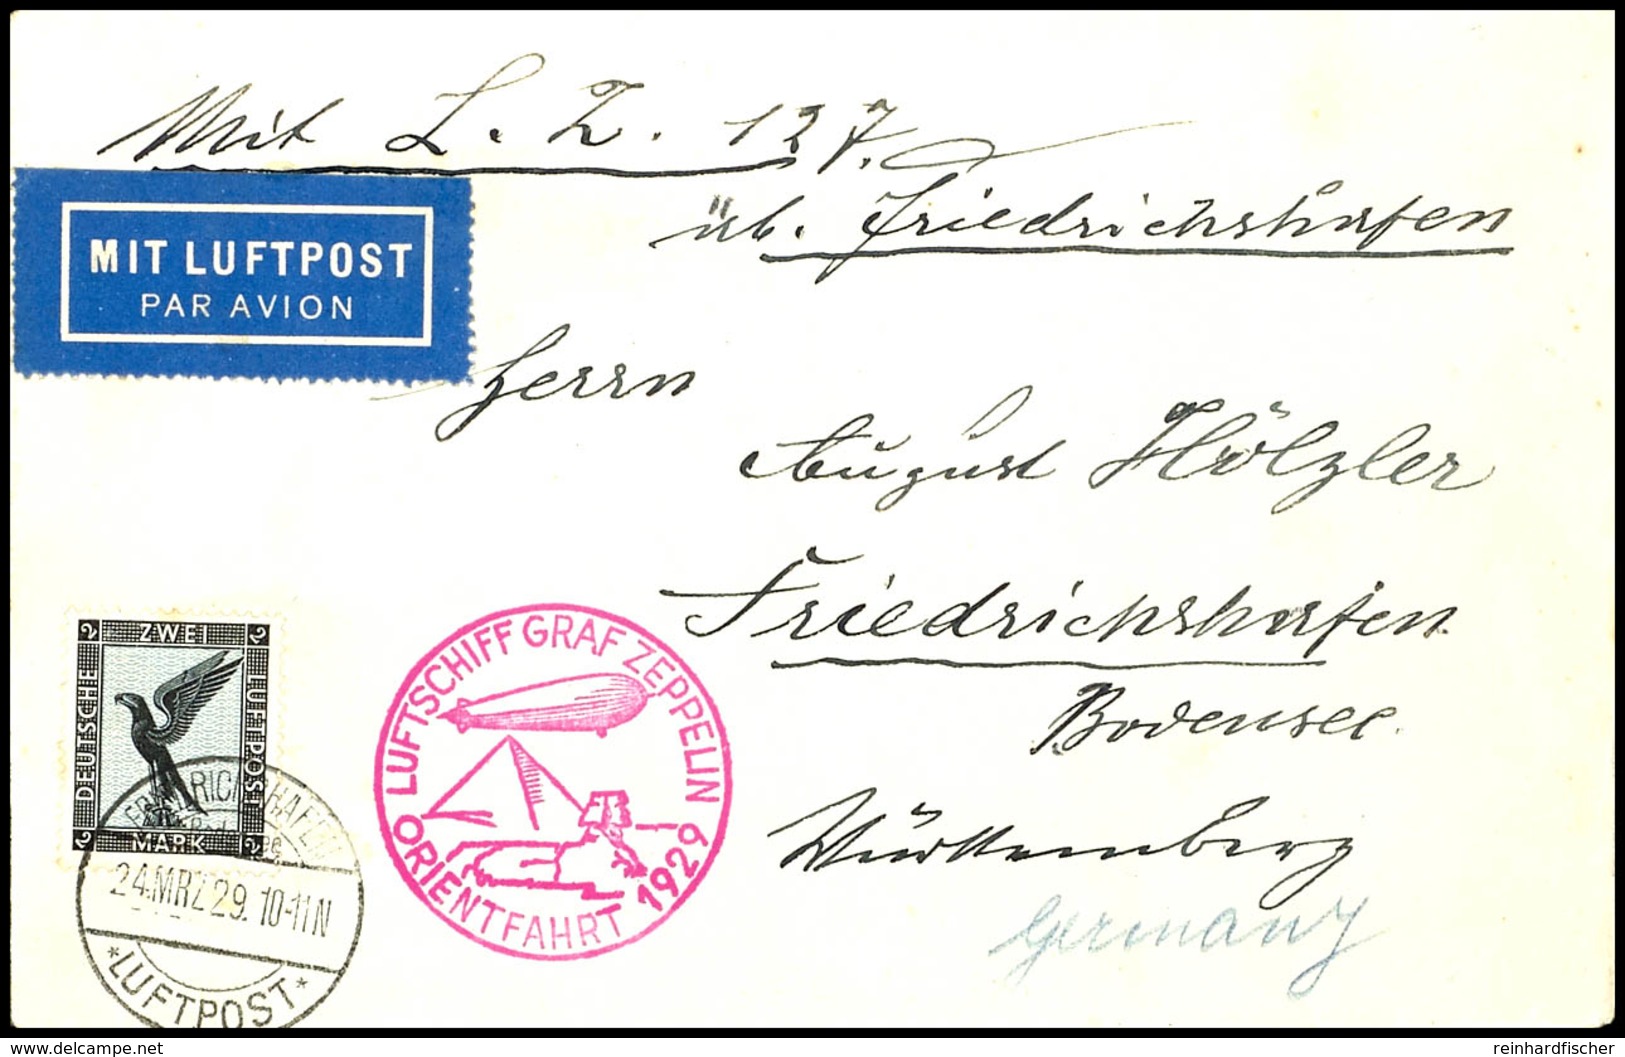 Mit L. Z. 127.
üb. Friedrichshafen
MIT LUFTPOST
PAR AVION
Herrn
August Hölzler
Friedrichshafen
Bodensee
Württemberg
Germany
2 ZWEI 2
DEUTSCHE
LUFTPOST
2 MARK 2
LUFTSCHIFF GRAF ZEPPELIN
ORIENTFAHRT 1929
FRIEDRICHSHAFEN
24.MRZ.29. 10-11 N
*LUFTPOST*
www.delcampe.net
reinhardfischer